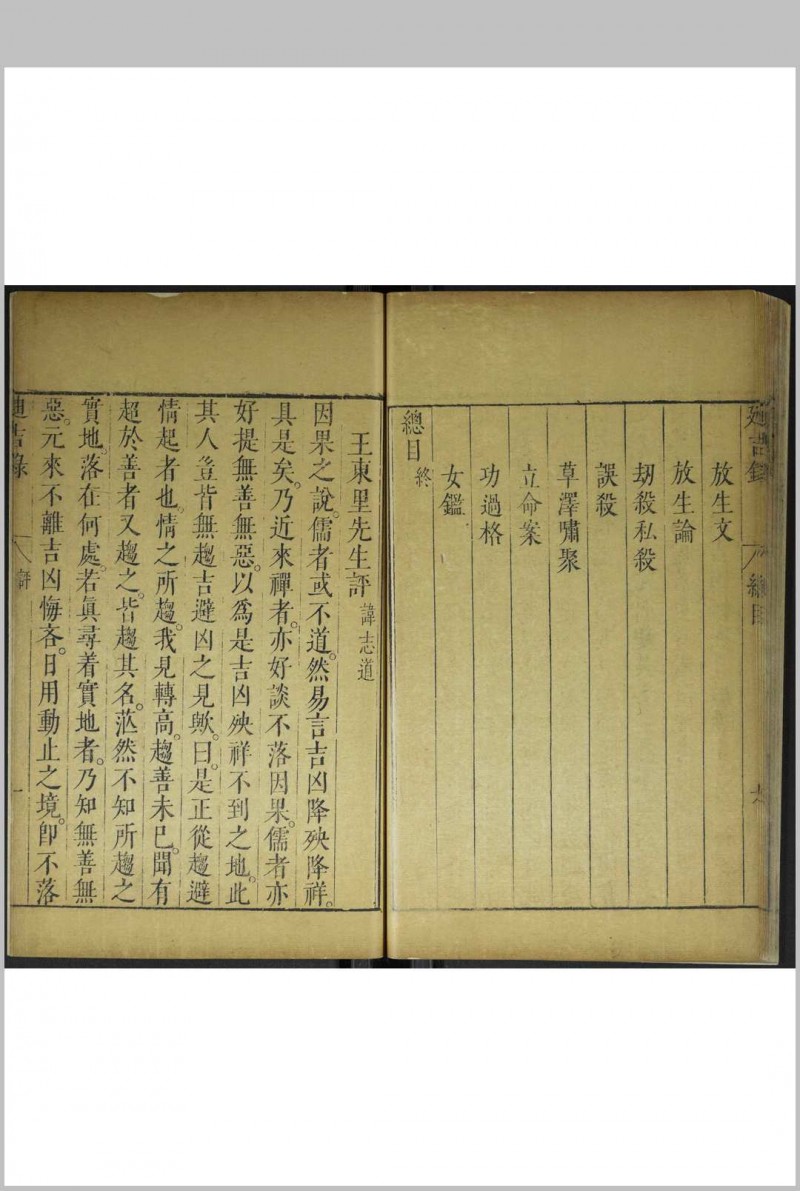 放生文
放生論
刼殺私殺
誤殺
草澤嘯聚
立命案
功過格
女鑑
總目終
王東里先生評 諱志道
因果之說。儒者或不道。然易言吉凶降殃降祥。
具是矣。乃近來禪者。亦好談不落因果。儒者亦
好提無善無惡。以爲是吉凶殃祥不到之地。此
其人豈皆無趨吉避凶之見歟。曰。是正從趨避
情起者也。情之所趨。我見轉高。趨善未已。聞有
超於善者又趨之。皆趨其名。茫然不知所趨之
實地。落在何處。若眞尋着實地者。乃知無善無
惡。元來不離吉凶悔吝。日用動止之境。卽不落
迪吉錄 評 一